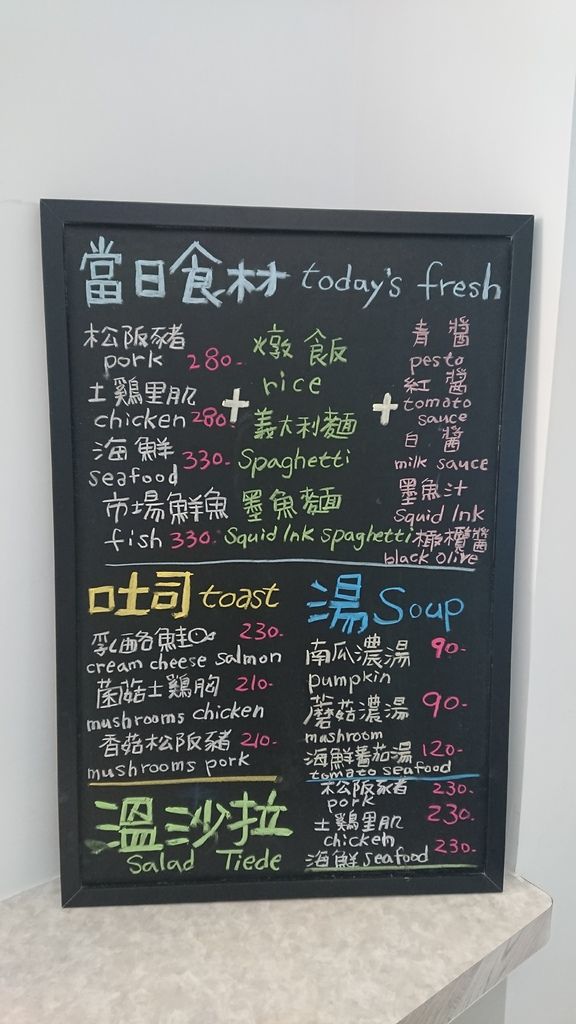 當日食材 today's fresh
松阪豬
pork 280-
土鷄里肌
chicken 280-
海鮮
seafood 330-
市場鮮魚
fish 330-
+
燉飯
rice
義大利麵
Spaghetti
墨魚麵
Squid Ink spaghetti
+
青醬
pesto
紅醬
tomato
sauce
白醬
milk sauce
墨魚汁
Squid Ink
橄欖醬
black olive
吐司 toast
乳酪鮭 230-
cream cheese salmon
菌菇土鷄胸 210-
mushrooms chicken
香菇松阪豬 210-
mushrooms pork
湯 Soup
南瓜濃湯 90-
pumpkin
蘑菇濃湯 90-
mashroom
海鮮蕃茄湯 120-
tomato seafood
溫沙拉
Salad Tiede
松阪豬 230-
pork
土鷄里肌 230-
chicken
海鮮 seafood 230-